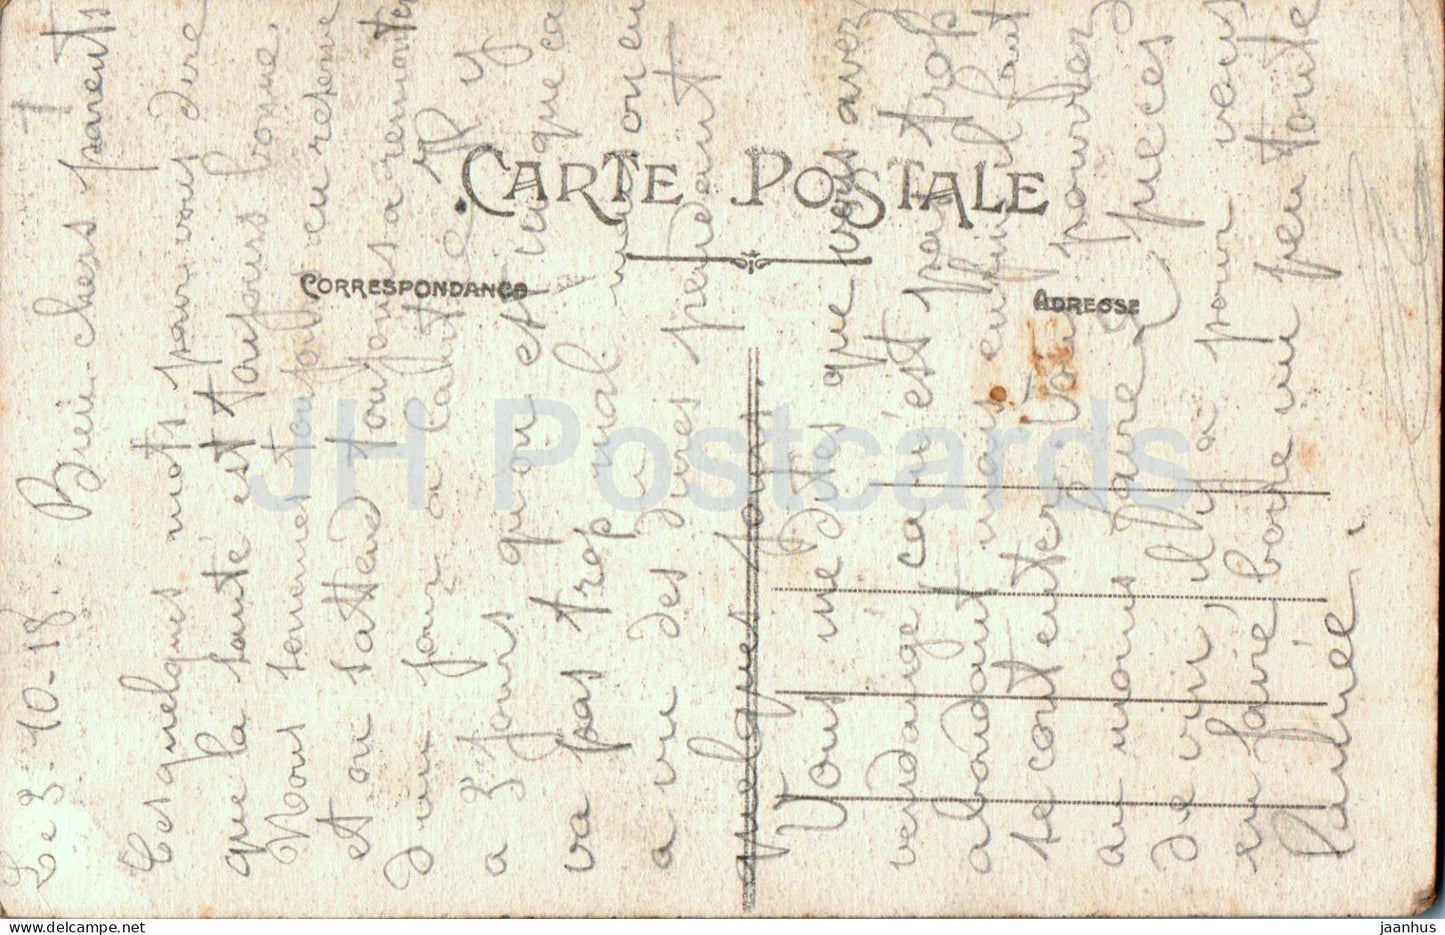 CARTE POSTALE
CORRESPONDANCE
ADRESSE
Le 3-10-18. Bien chers parents
Ces quelques mots pour vous dire
que la santé est toujours bonne.
Nous sommes toujours en réserve
et on s'attend toujours a remonter
d'un jour a l'autre, il y
a 3 jours qu'on est ici que ca
va pas trop mal
a vu des dures pendant
quelques jours.
Vous me dites que vous avez
vendangé, ca n'est pas trop
abondant mais enfin il faut
se contenter, vous pourrez
au moins faire pièces
de vin, il y a pour vous
en faire boire un peu toute
l'année.
JH Postcards
delcampe.net
jaanhus